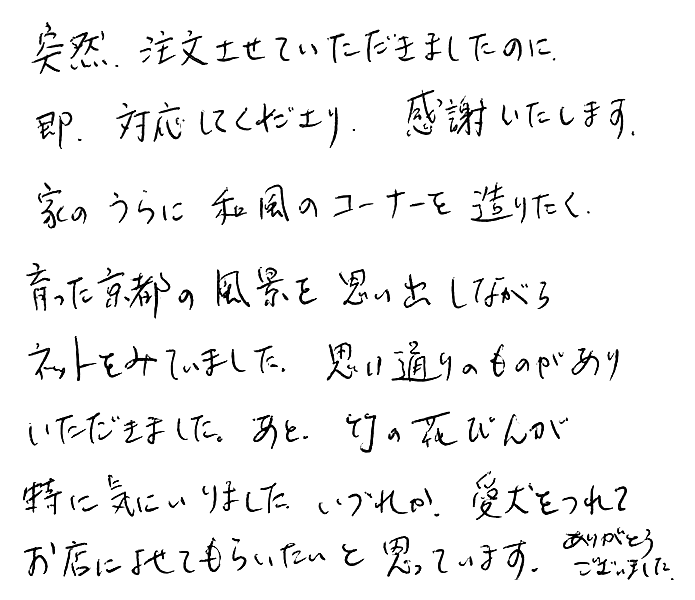 突然、注文させていただきましたのに、
即、対応してくださり、感謝いたします。
家のうらに和風のコーナーを造りたく、
育った京都の風景を思い出しながら
ネットをみていました。思い通りのものがあり
いただきました。あと、竹の花びんが
特に気にいりました。いづれか、愛犬をつれて
お店によせてもらいたいと思っています。ありがとう
ございました。